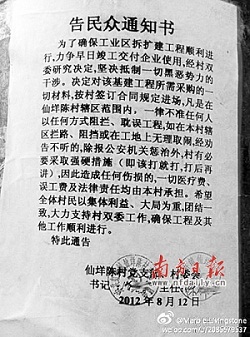 告民众通知书
为了确保工业区拆扩建工程顺利进
行,力争早日竣工交付企业使用,经村双
委研究决定,坚决抵制一切黑恶势力的
干涉。决定对该基建工程所需采购的一
切材料,按村签订合同规定进场,凡是在
仙垟陈村辖区范围内,一律不准任何人
以任何方式阻拦、耽误工程,如在本村辖
区拦路、阻挡或在工地上无理取闹,经劝
告不听的,除报公机关惩治外,村有必
要采取强硬措施(即该打就打,打后再
讲),因此造成任何伤损的,一切医疗费、
误工费及法律责任均由本村承担。希望
全体村民以集体利益、大局为重,团结一
致,大力支持村双委工作,确保工程及其
他工作顺利进行。
特此通告
仙垟陈村党支部 村委会
书记 主任
2012年8月12日
南方日报
www.nfdaily.cn
weibo.com/2089679537